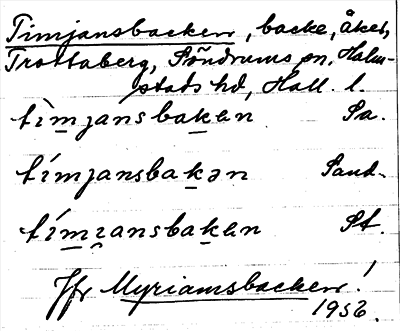 Timjansbacken, backe, åker,
Trottaberg, Söndrums sn, Halm-
stads hd, Hall. l.
tìmjansbakan Sa.
tímjansbakən Sand-
tímiansbakan St.
Jfr Myriamsbacken!
1956.